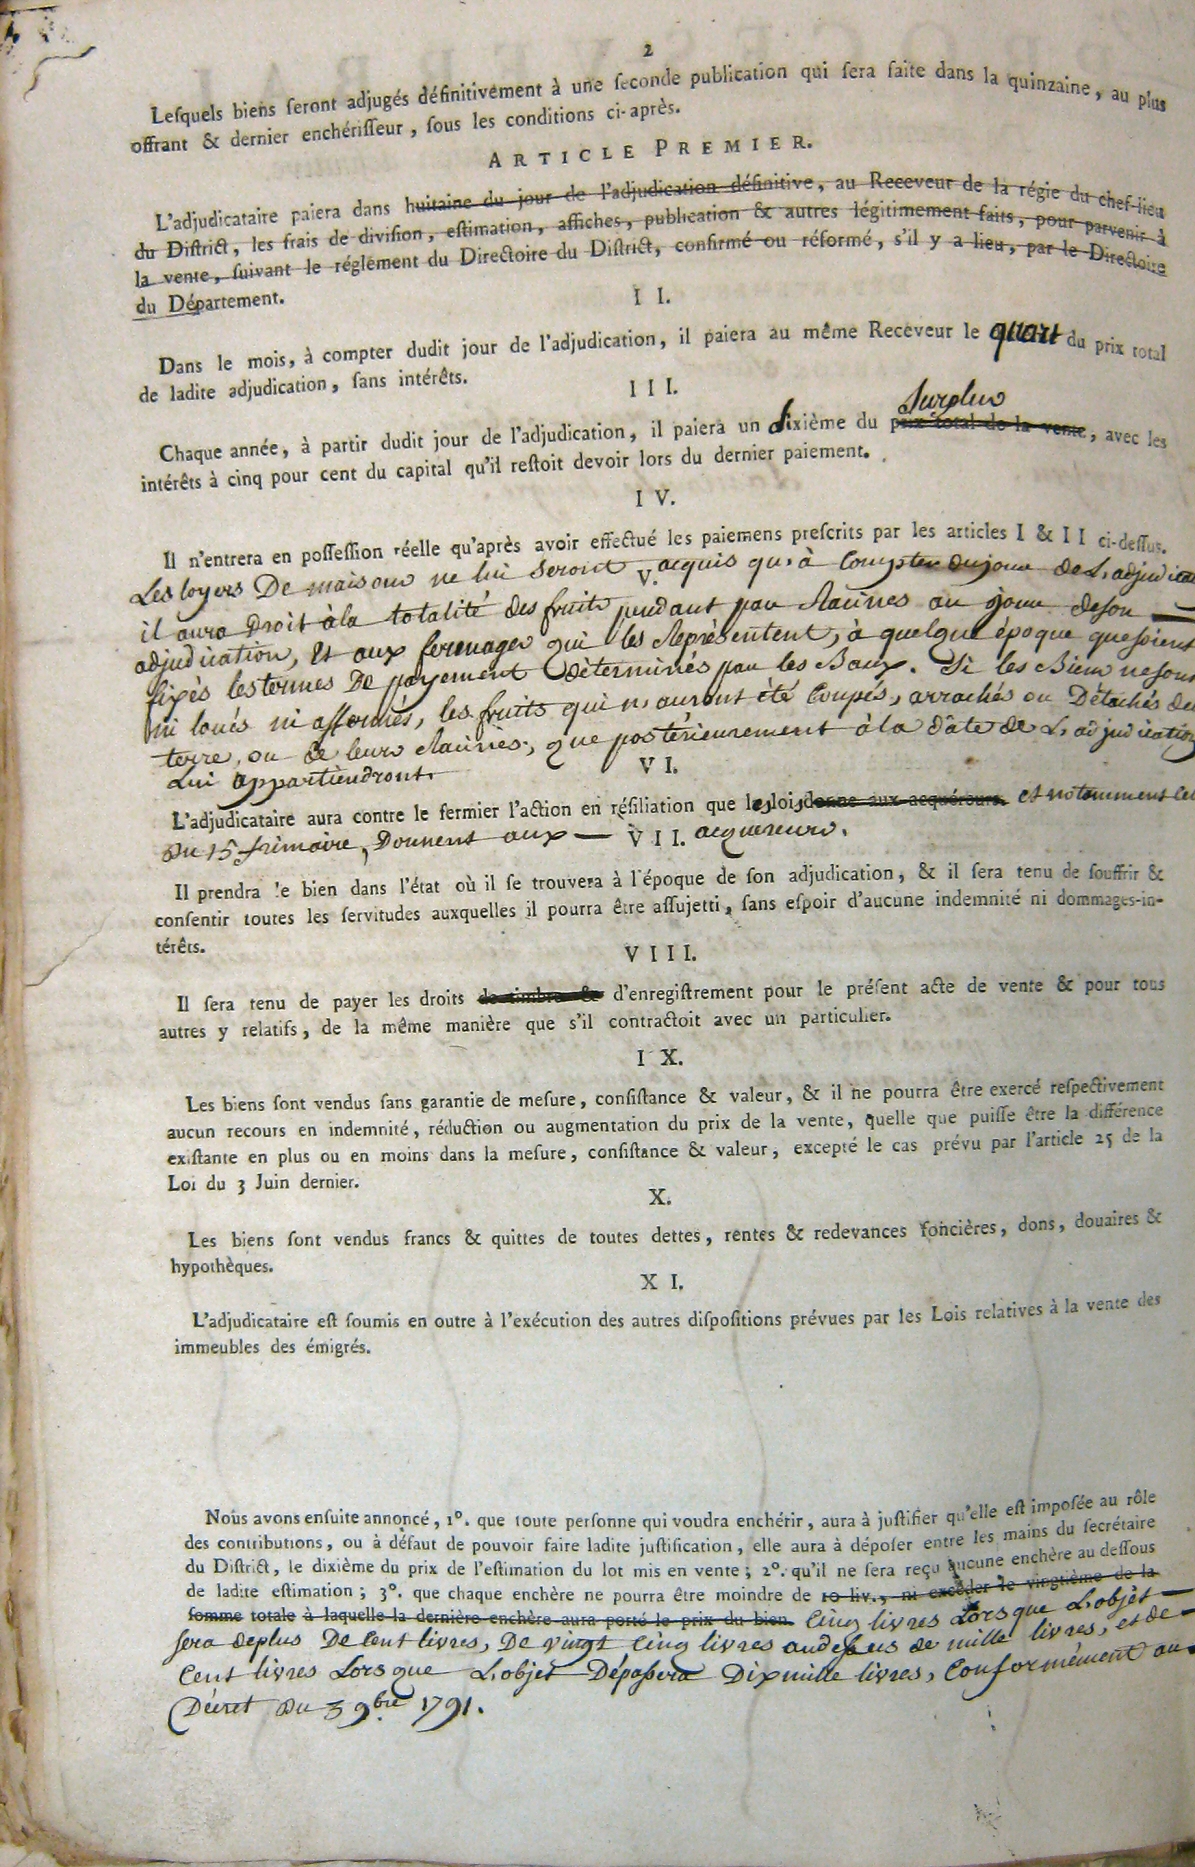 2
Lesquels biens seront adjugés définitivement à une seconde publication qui sera faite dans la quinzaine, au plus
offrant & dernier enchérisseur, sous les conditions ci-après.
ARTICLE PREMIER.
L'adjudicataire paiera dans huitaine du jour de l'adjudication définitive, au Receveur de la régie du chef-lieu
du District, les frais de division, estimation, affiches, publication & autres légitimement faits, pour parvenir à
la vente, suivant le réglement du Directoire du District, confirmé ou réformé, s'il y a lieu, par le Directoire
du Département.
II.
Dans le mois, à compter dudit jour de l'adjudication, il paiera au même Receveur le quart du prix total
de ladite adjudication, sans intérêts.
III.
Surplus
Chaque année, à partir dudit jour de l'adjudication, il paiera un sixième du prix total de la vente, avec les
intérêts à cinq pour cent du capital qu'il restoit devoir lors du dernier paiement.
IV.
Il n'entrera en possession réelle qu'après avoir effectué les paiemens prescrits par les articles I & II ci-dessus.
Les loyers De maisons ne lui seront acquis qu'à Compter du jour de L'adjudicat
V.
il aura Droit à la totalité des fruits pendant par Racines au jour de son
adjudication, Et aux fermages qui les Représentent, à quelque époque que soient
fixés les termes De payement déterminés par les Baux. Si les Biens ne sont
ni loués ni affermés, les fruits qui n'auront été Coupés, arrachés ou Détachés de
terre, ou de leurs Racines, que postérieurement à la date de L'adjudication
Lui appartiendront.
VI.
L'adjudicataire aura contre le fermier l'action en résiliation que les lois donne aux acquéreurs et notamment cel
du 15 frimaire, Donnent aux acquereurs.
VII.
Il prendra le bien dans l'état où il se trouvera à l'époque de son adjudication, & il sera tenu de souffrir &
consentir toutes les servitudes auxquelles il pourra être assujetti, sans espoir d'aucune indemnité ni dommages-in-
térêts.
VIII.
Il sera tenu de payer les droits de timbre & d'enregistrement pour le présent acte de vente & pour tous
autres y relatifs, de la même manière que s'il contractoit avec un particulier.
IX.
Les biens sont vendus sans garantie de mesure, consistance & valeur, & il ne pourra être exercé respectivement
aucun recours en indemnité, réduction ou augmentation du prix de la vente, quelle que puisse être la différence
existante en plus ou en moins dans la mesure, consistance & valeur, excepté le cas prévu par l'article 25 de la
Loi du 3 Juin dernier.
X.
Les biens sont vendus francs & quittes de toutes dettes, rentes & redevances foncières, dons, douaires &
hypothèques.
XI.
L'adjudicataire est soumis en outre à l'exécution des autres dispositions prévues par les Lois relatives à la vente des
immeubles des émigrés.
Nous avons ensuite annoncé, 1°. que toute personne qui voudra enchérir, aura à justifier qu'elle est imposée au rôle
des contributions, ou à défaut de pouvoir faire ladite justification, elle aura à déposer entre les mains du secrétaire
du District, le dixième du prix de l'estimation du lot mis en vente; 2°. qu'il ne sera reçu aucune enchère au dessous
de ladite estimation; 3°. que chaque enchère ne pourra être moindre de 10 liv., ni excéder le vingtième de la
somme totale à laquelle la dernière enchère aura porté le prix du bien. Cinq livres Lorsque L'objet
sera de plus De Cent livres, De vingt Cinq livres audessus de mille livres, et de
Cent livres Lorsque L'objet Dépassera Dix mille livres, Conformément au
Décret Du 3 9bre 1791.